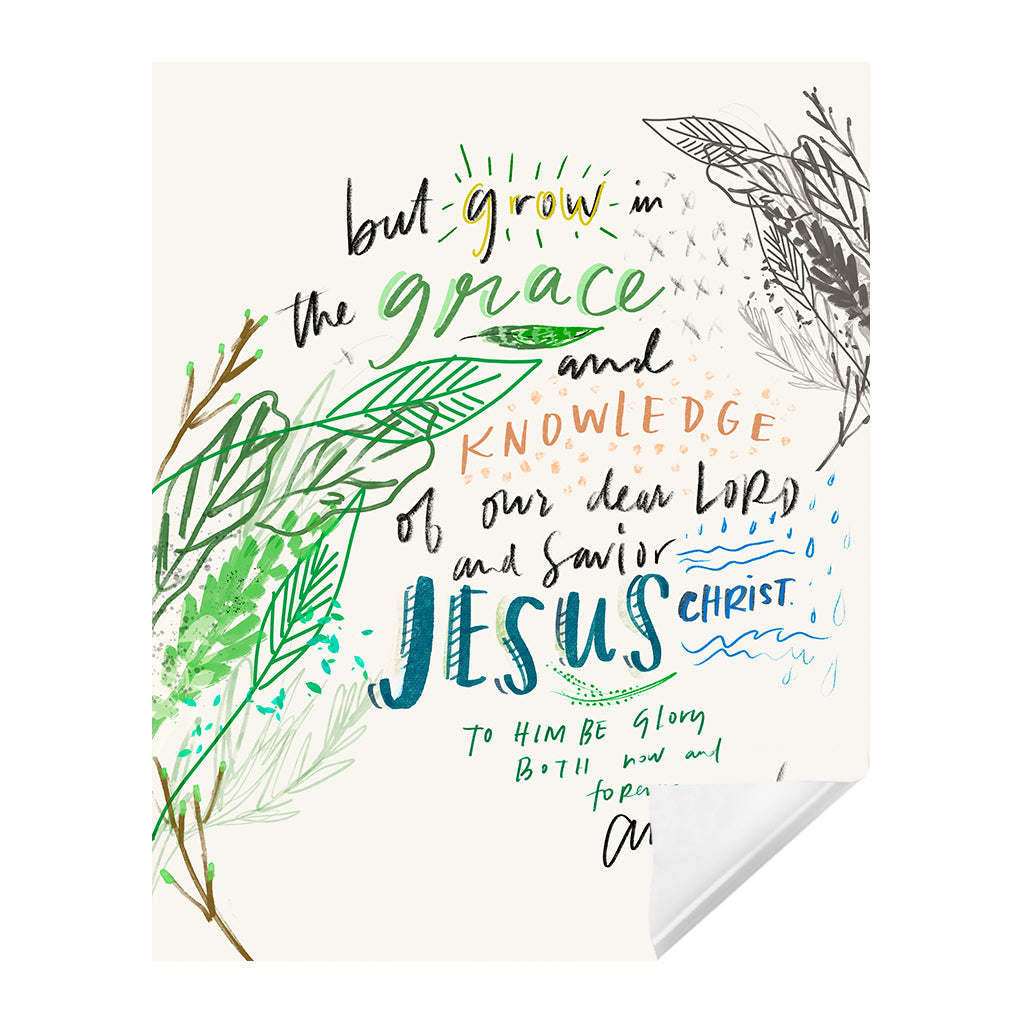 but grow in
the grace
and
KNOWLEDGE
of our dear LORD
and Savior
JESUS CHRIST.
TO HIM BE Glory
BOTH now and